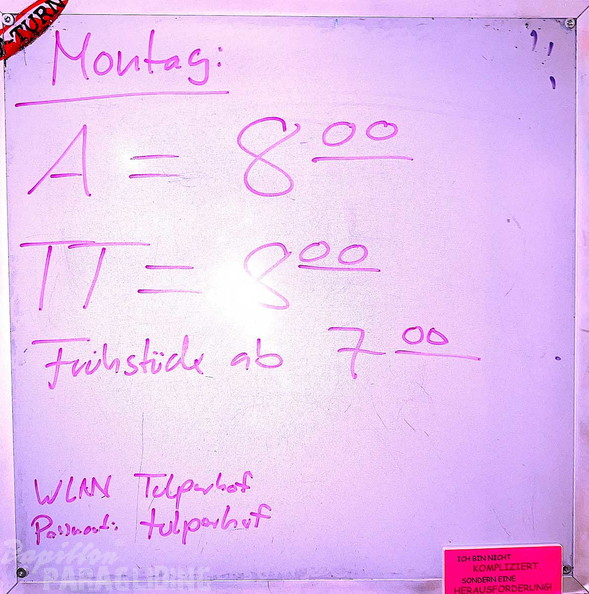 TURN
Montag:
A = 8 00
TT = 8 00
Frühstück ab 7 00
WLAN Tulperhof
Passwort: tulperhof
Papillon
PARAGLIDING
ICH BIN NICHT
KOMPLIZIERT
SONDERN EINE
HERAUSFORDERUNG!